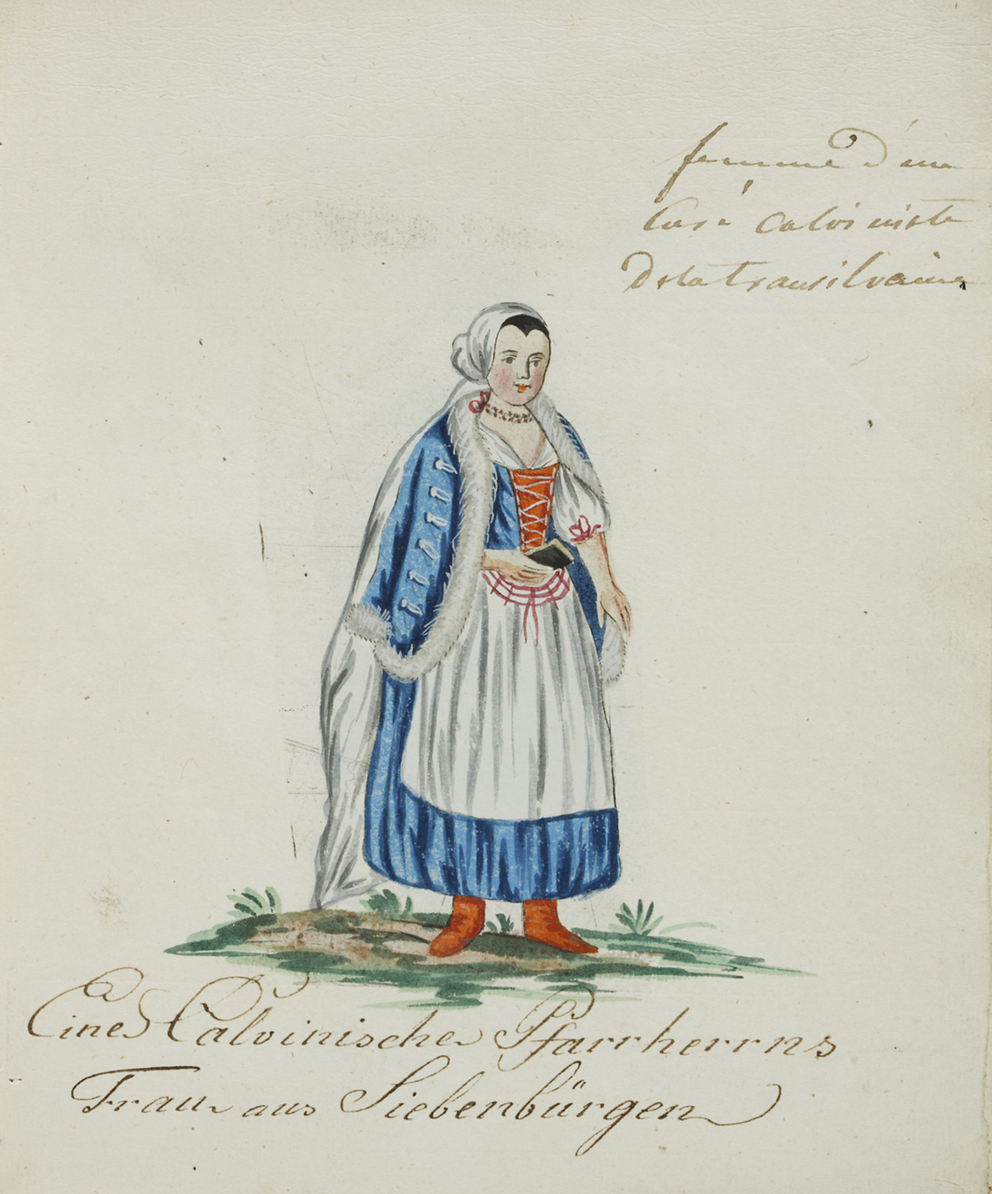 femme d'un
Curé calviniste
De la transilvaine
Eines Calvinische Pfarrherrns
Frau aus Siebenbürgen